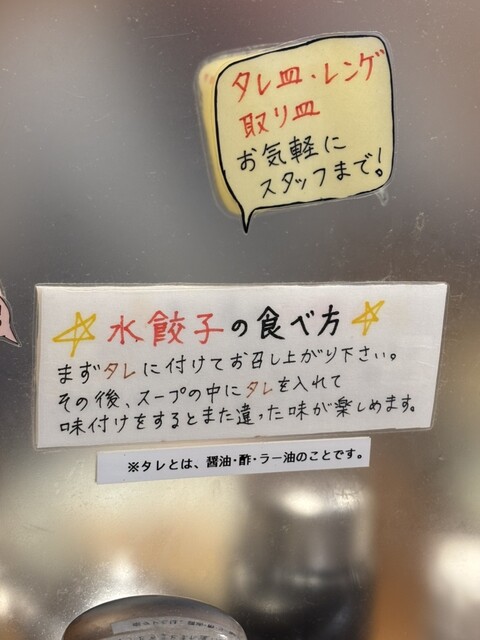 タレ皿・レンゲ
取り皿
お気軽に
スタッフまで!
☆水餃子の食べ方☆
まずタレに付けてお召し上がり下さい。
その後、スープの中にタレを入れて
味付けをするとまた違った味が楽しめます。
※タレとは、醤油・酢・ラー油のことです。